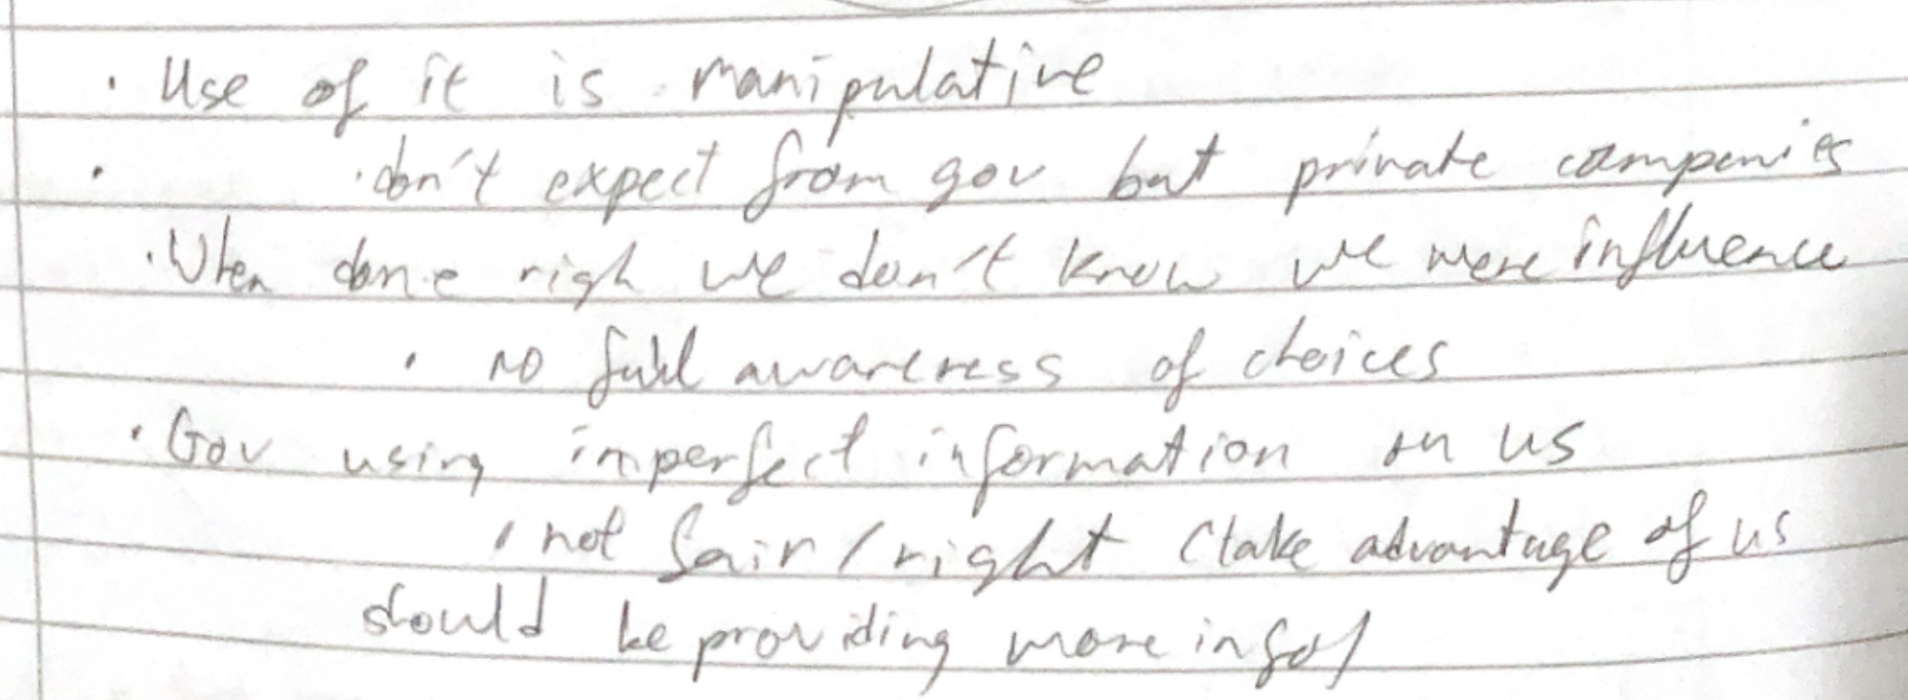 · Use of it is manipulative
· · don't expect from gov but private companies
· When done righ we don't know we were influence
· no full awareness of choices
· Gov using imperfect information on us
· not fair / right (take advantage of us
should be providing more info)